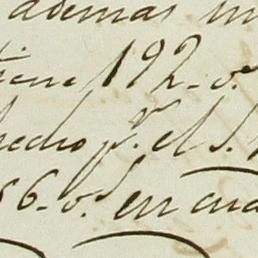 ademas in
tiene 192_v.
hecho pr. el S.
66_v. en cua